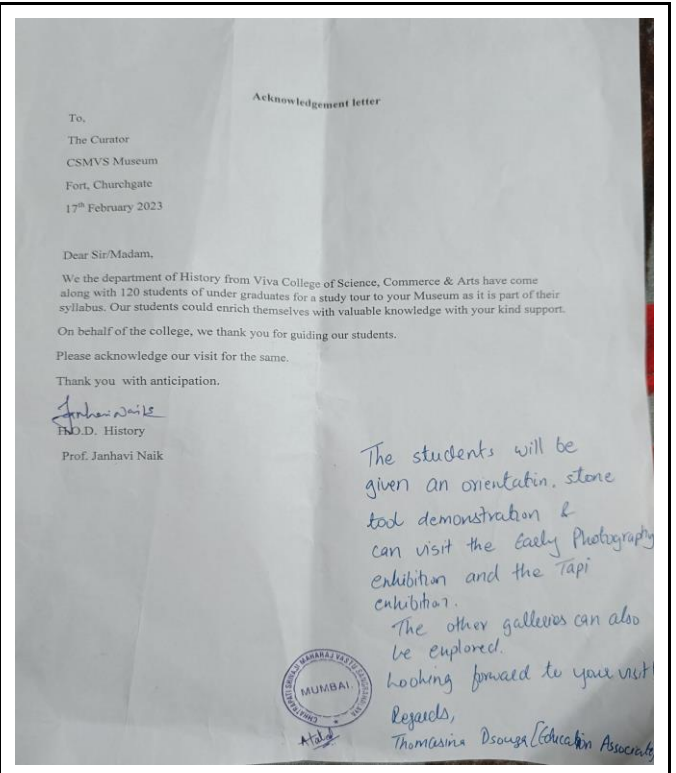 Acknowledgement letter
To,
The Curator
CSMVS Museum
Fort, Churchgate
17th February 2023
Dear Sir/Madam,
We the department of History from Viva College of Science, Commerce & Arts have come
along with 120 students of under graduates for a study tour to your Museum as it is part of their
syllabus. Our students could enrich themselves with valuable knowledge with your kind support.
On behalf of the college, we thank you for guiding our students.
Please acknowledge our visit for the same.
Thank you with anticipation.
Janhavi Naik
H.O.D. History
Prof. Janhavi Naik
The students will be
given an orientatin, stone
tool demonstration &
can visit the Early Photography
exhibition and the Tapi
exhibition.
The other galleries can also
be explored.
Looking forward to your visit!
Regards,
Thomasina Dsouza [Education Associate
CHHATRAPATI SHIVAJI MAHARAJ VASTU SANGRAHALAYA
MUMBAI